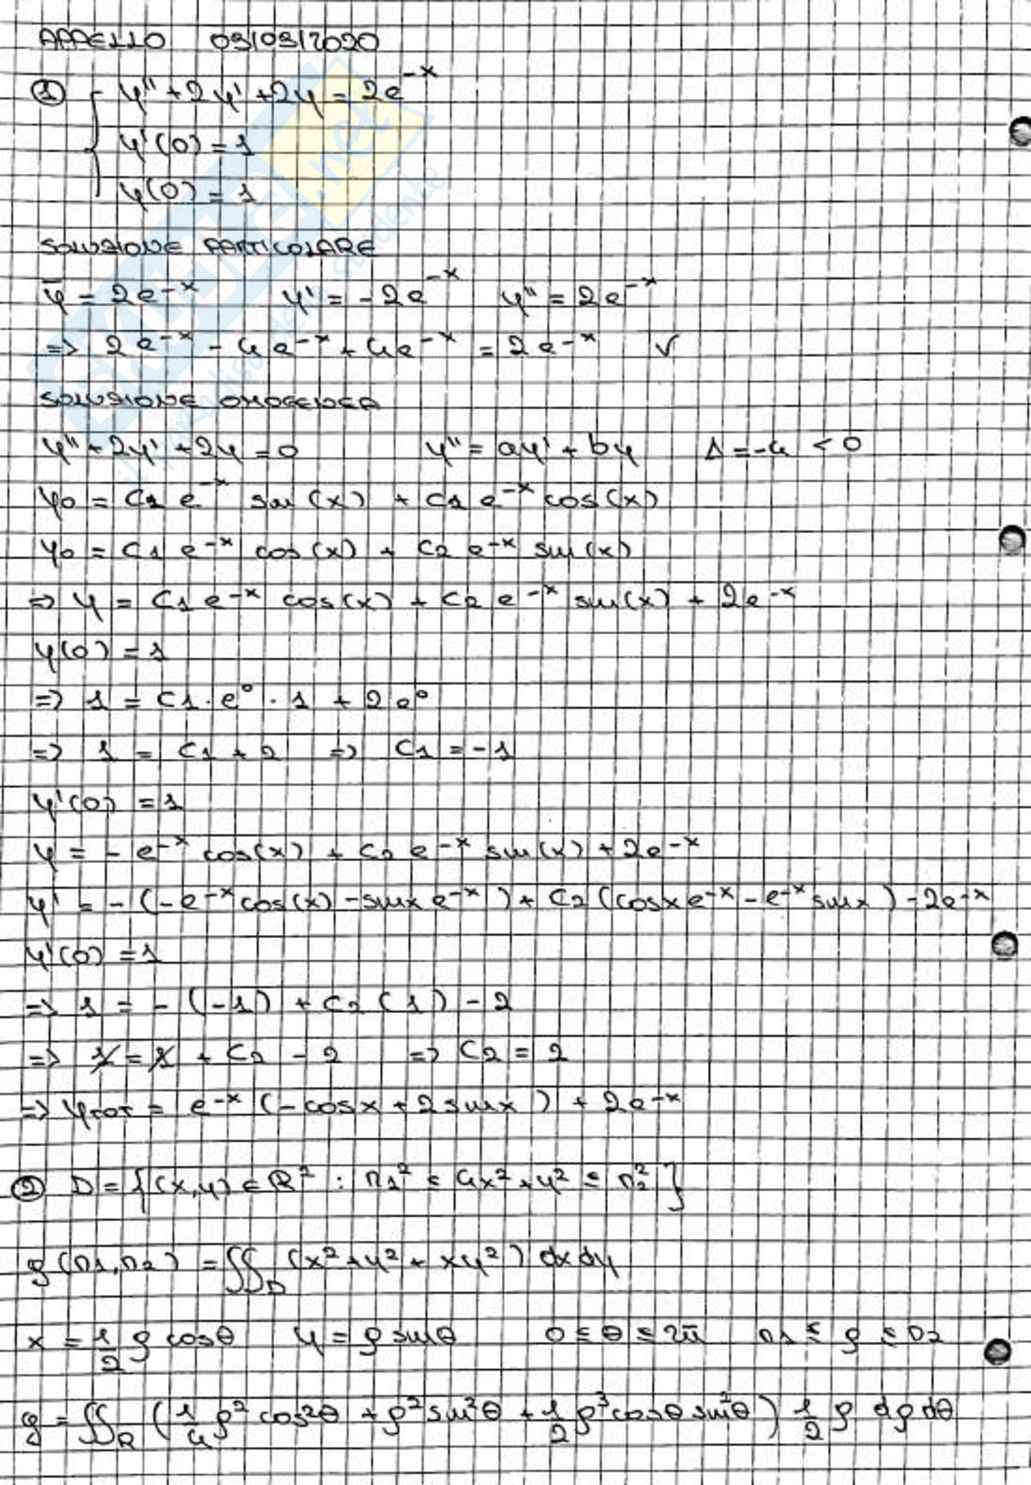 APPELLO 03/03/2020
① { y'' + 2y' + 2y = 2e^-x
y'(0) = 1
y(0) = 1
SOLUZIONE PARTICOLARE
ȳ = 2e^-x    y' = -2e^-x    y'' = 2e^-x
=> 2e^-x - 4e^-x + 4e^-x = 2e^-x    √
SOLUZIONE OMOGENEA
y'' + 2y' + 2y = 0    y'' = ay' + by    Δ = -4 < 0
y0 = C2 e^-x sin(x) + C1 e^-x cos(x)
y0 = C1 e^-x cos(x) + C2 e^-x sin(x)
=> y = C1 e^-x cos(x) + C2 e^-x sin(x) + 2e^-x
y(0) = 1
=> 1 = C1 · e^0 · 1 + 2e^0
=> 1 = C1 + 2 => C1 = -1
y'(0) = 1
y = -e^-x cos(x) + C2 e^-x sin(x) + 2e^-x
y' = -(-e^-x cos(x) - sinx e^-x) + C2 (cosx e^-x - e^-x sinx) - 2e^-x
y'(0) = 1
=> 1 = -(-1) + C2 (1) - 2
=> 1 = 1 + C2 - 2 => C2 = 2
=> yTOT = e^-x (-cosx + 2 sinx) + 2e^-x
② D = {(x,y) ∈ R² : r1² ≤ 4x² + y² ≤ r2²}
g(r1,r2) = ∫∫D (x² + y² + xy²) dx dy
x = 1/2 ρ cosθ    y = ρ sinθ    0 ≤ θ ≤ 2π    r1 ≤ ρ ≤ r2
g = ∫∫R (1/4 ρ² cos²θ + ρ² sin²θ + 1/2 ρ³ cosθ sin²θ) 1/2 ρ dρ dθ